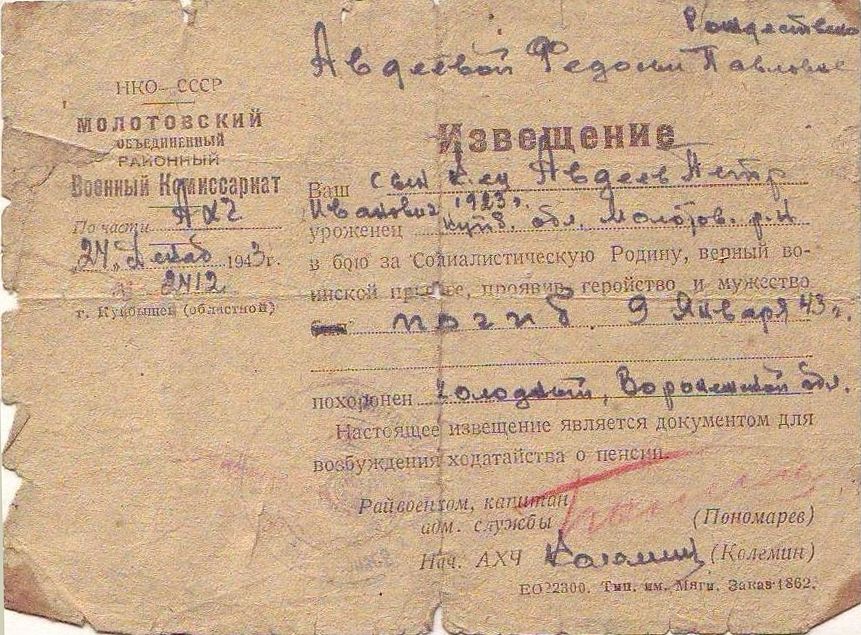 Рождествено
Авдеевой Федосии Павловне
НКО—СССР
МОЛОТОВСКИЙ
ОБЪЕДИНЕННЫЙ
РАЙОННЫЙ
Военный Комиссариат
По части АХЧ
"24" декаб 1943 г.
2412
г. Куйбышев (областной)
Извещение
Ваш сын Авдеев Петр
Иванович 1923 г.
уроженец Куйб. обл. Молотов. р-н
в бою за Социалистическую Родину, верный во-
инской присяге, проявив геройство и мужество
погиб 9 Января 43 г.
похоронен Холодный, Воронежской обл.
Настоящее извещение является документом для
возбуждения ходатайства о пенсии.
Райвоенком, капитан
адм. службы (Пономарев)
Нач. АХЧ (Колемин)
ЕО22300. Тип. им. Мяги. Заказ 1862.